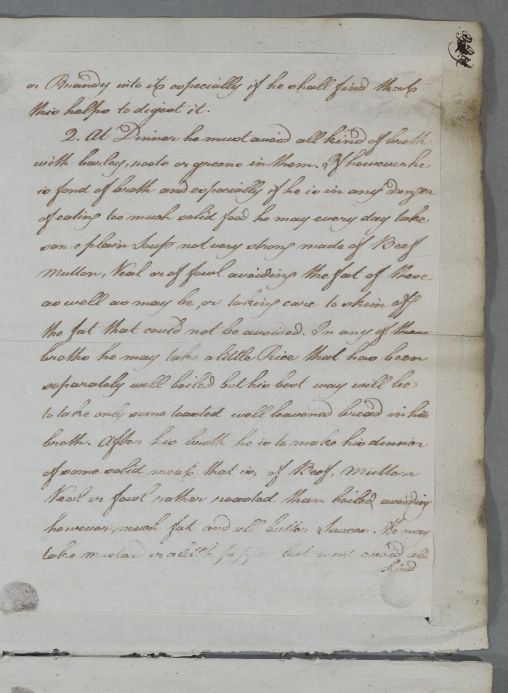 or Brandy into it especially if he shall find that
this helps to digest it.
2. At Dinner he must avoid all kind of broth
with barley, roots or greens in them. If however he
is fond of broth and especially if he is in any danger
of eating too much solid food he may every day take
some plain Soup not very strong made of Beef
Mutton, Veal or of fowl avoiding the fat of these
as well as may be, or taking care to skim off
the fat that could not be avoided. In any of these
broths he may take a little Rice that has been
separately well boiled but his best way will be
to take only some toasted well leavened bread in his
broth. After his broth he is to make his dinner
of some solid meat, that is, of Beef, Mutton
Veal or fowl rather roasted than boiled avoiding
however much fat and all butter Sauces. He may
take mustard or a little pepper but must avoid all
kind